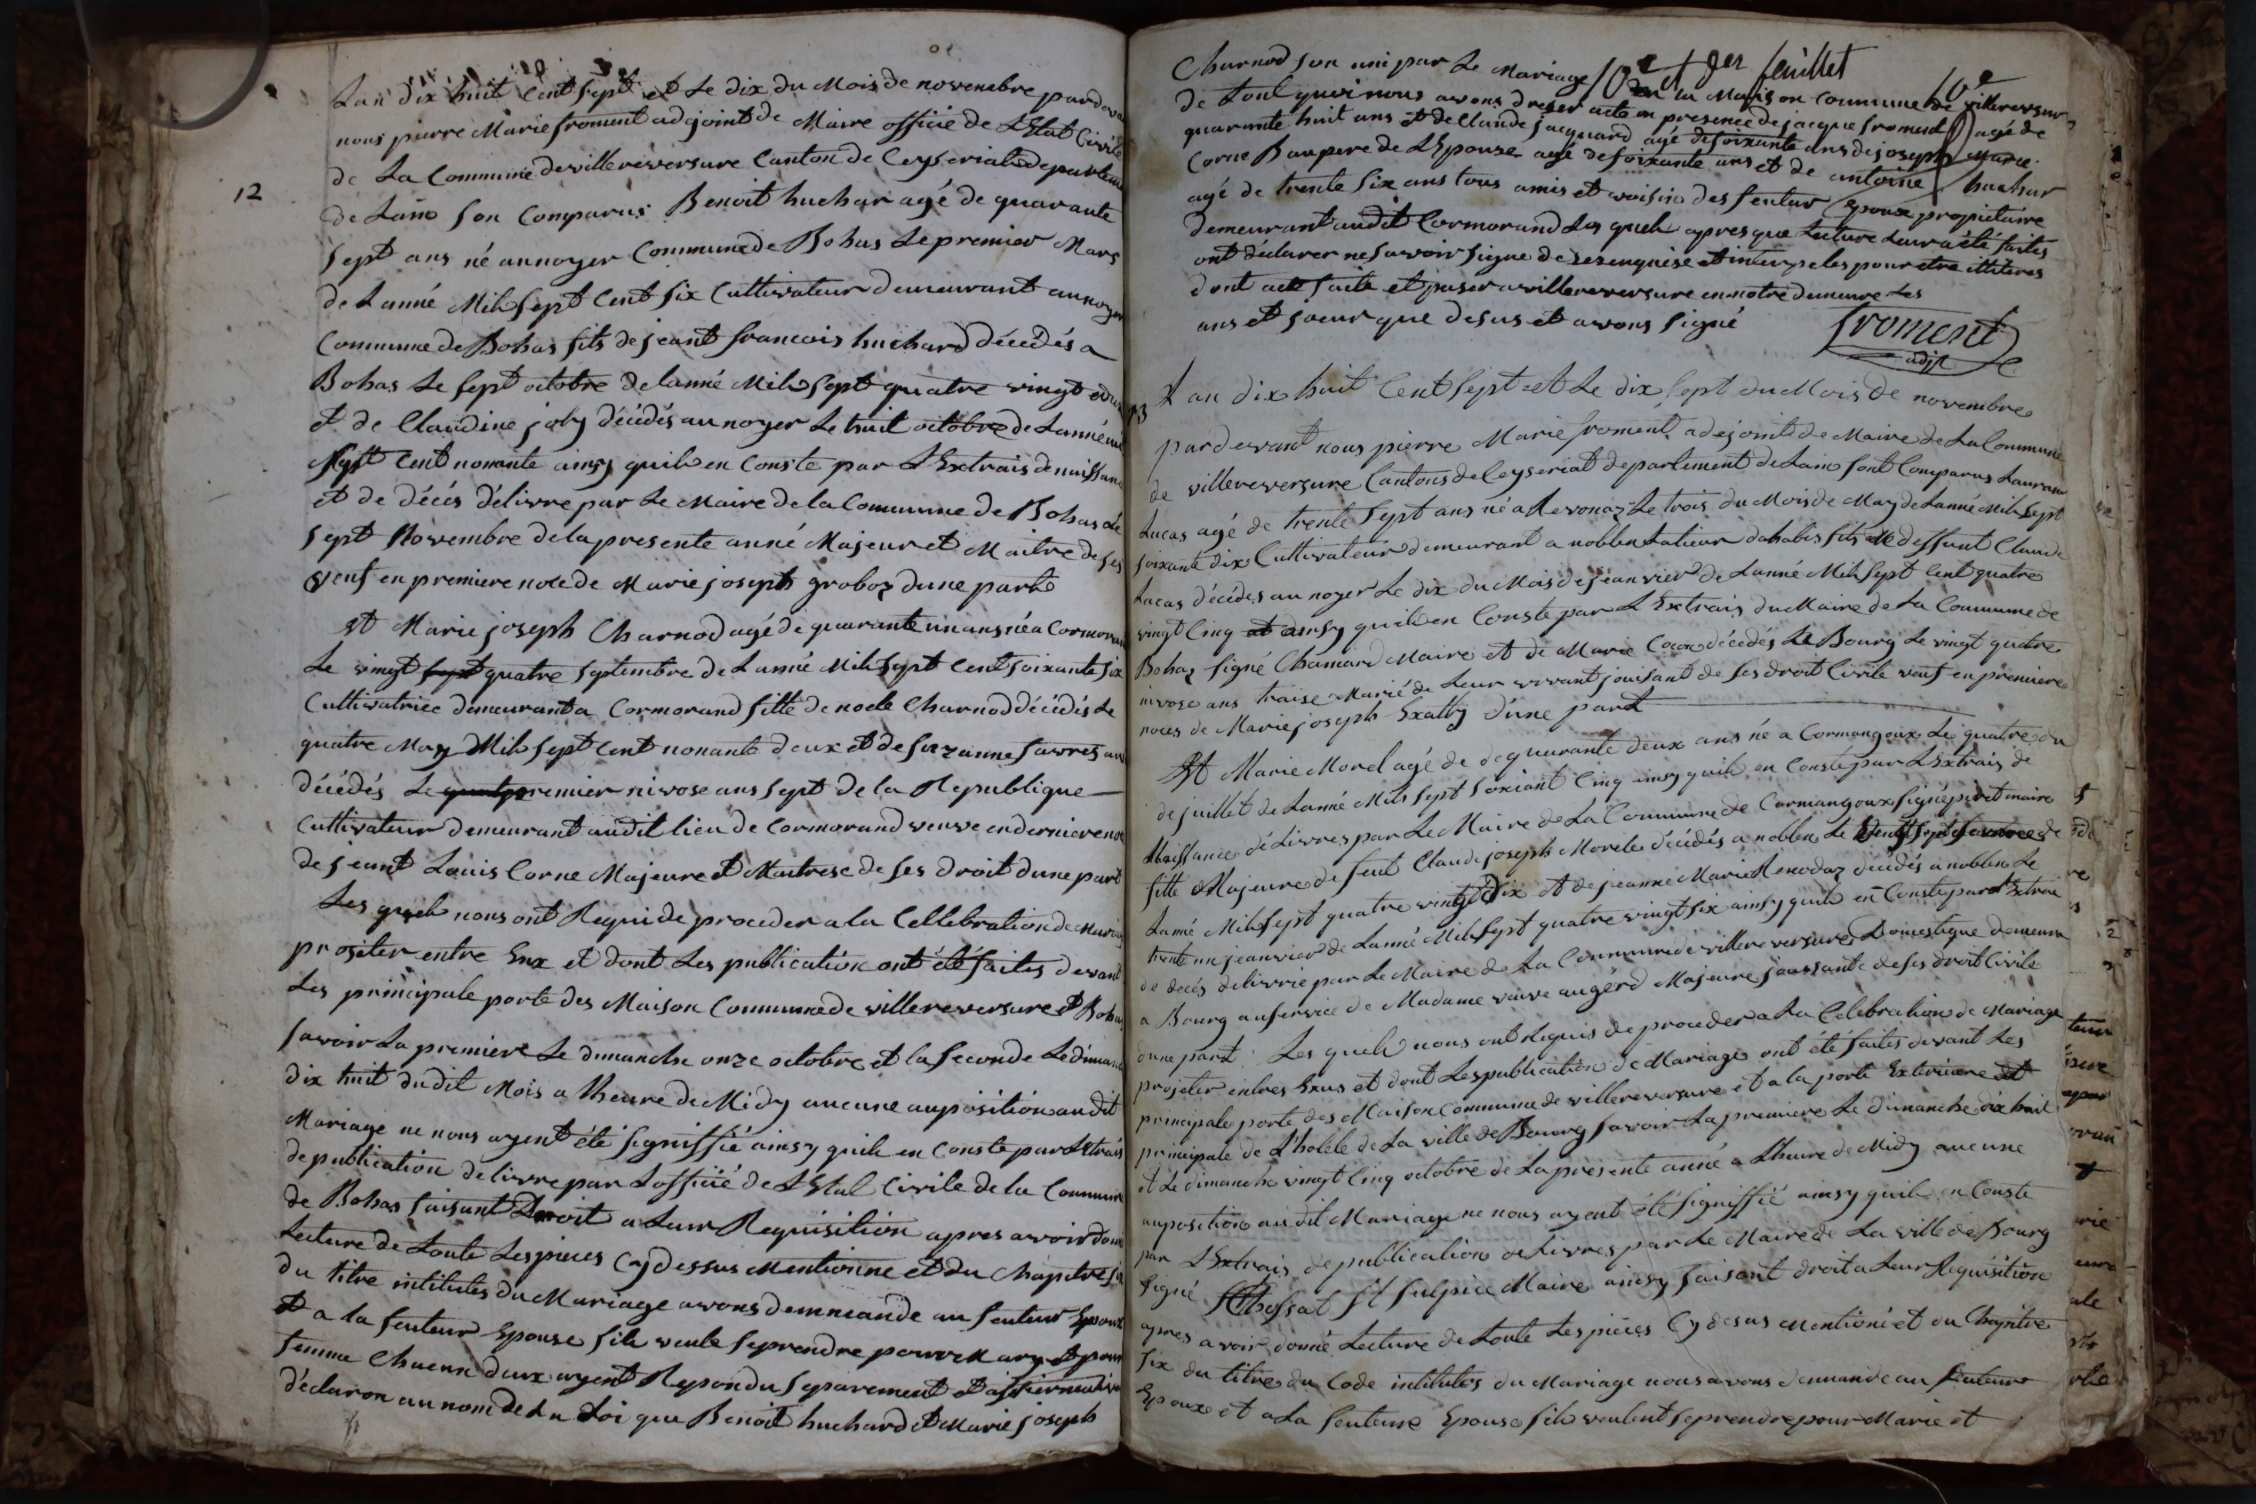 12
Lan dix huit Cent sept et Le dix du Mois de novenbre pardeva
nous pierre Marie froment adjoint de Maire officie de L'Etat Civile
de La Commune de villereversure Canton de Ceyseriat departem
de Lain son Comparus Benoit huchar agé de quarante
sept ans né au noyer Commune de Bohas Le premier Mars
de Lanné Mil sept Cent six Cultivateur demeurant au noyer
Commune de Bohas fils de jeant francois huchard décédés a
Bohas Le sept octobre de lanné Mil sept quatre vingt
et de Claudine joly décédés au noyer Le huit octobre de Lanné mil
sept Cent nonante ainsy quil en Conste par L'Extrais de naissan
et de décés délivre par Le Maire de la Commune de Bohas Le
sept Novembre de la presente anné Majeur et Maitre de ses
veuf en premiere noce de Marie joseph groboz dune parte
Et Marie joseph Charnod agé de quarante un ans né a Cormoran
Le vingt sept quatre septembre de Lanné Mil sept Cent soixante six
Cultivatrice demeurant a Cormorand fille de noele Charnod décédés Le
quatre May Mil sept Cent nonante deux et de suzanne favres au
décédés Le premier nivose ans sept de la Republique
Cultivateur demeurant audit lieu de Cormorand veuve en derniere noc
de jeant Louis Corne Majeure et Maitrese de ses droit dune part
Les quels nous ont Requi de proceder a la Cellebration de Maria
projeter entre Eux et dont Les publication ont été faites devant
Les principale porte des Maison Commune de villereversure et Bohas
savoir La premiere Le dimanche onze octobre et la seconde Le diman
dix huit dudit Mois a Lheure de Midy aucune auposition audit
Mariage ne nous ayent été signiffié ainsy quil en Conste par Letrais
de publication delivre par Lofficié de L'Etat Civile de la Commun
de Bohas faisant Droit a Leur Requisition apres avoir don
Lecture de toute Les pieces Cy dessus Mentionne et du Chapitre si
du titre intitules du Mariage avons demmeande au feuteur Epoux
et a la feuteur Epouse sils veule se prendre pour Mary et pour
femme Chacun deux ayent Repondu separement et affirmativ
déclaron au nom de La Loi que Benoit huchard et Marie joseph
Charnod son uni par Le Mariage
10e et der feuillet
10e
de tout quoi nous avons dresser acte en la Maison Commune de villereversur
en presence de jacque fromend agé de
quarante huit ans et de Claude jacquard agé de soixante ans de joseph Marie
Corne Baupere de L'Epouse agé de soixante ans et de antoine huchar
agé de trente six ans tous amis et voisin des feutur Epoux propietaire
demeurant audit Cormorand Les quels apres que Lecture Leur a été faites
ont déclarer ne savoir signe de ce enquise et interpeles pour etre illiteres
dont acte faite et paser a villereversure en notre demeure Les
ans et joeur que desus et avons signé
froment
adjt
13
L an dix huit Cent sept et Le dix sept du Mois de novembre
pardevant nous pierre Marie froment adejoint de Maire de La Commune
de villereversure Cantons de Ceyseriat departement de Lain sont Comparus Lauran
Lucas agé de trente sept ans né a Revonaz Le trois du Mois de May de Lanné Mil sept
soixante dix Cultivateur demeurant a noblen tatieur dahabis fils de deffunt Claude
Lucas décédés au noyer Le dix du Mois de jeanvier de Lanné Mil sept Cent quatre
vingt Cinq et ainsy quil en Conste par L'Extrais du Maire de La Commune de
Bohaz signé Chamard Maire et de Marie décédés Le Bourg Le vingt quatre
nivose ans traise Marié de Leur vivant jouisant de ses droit Civile veuf en premiere
noces de Marie joseph Exatty d'une part
Et Marie Morel agé de de quarante deux ans né a Cormangoux Le quatre du
de juillet de Lanné Mil sept soxiant Cinq ainsy quil en Conste par L'Extrais de
Naissance délivres par Le Maire de La Commune de Cormangoux signé maire
fille Majeure de feut Claude joseph Morele décédés a noblen Le
Lanné Mil sept quatre vingt Dix et de jeanne Marie Renodaz décédés a noblen Le
trente un jeanvier de Lanné Mil sept quatre vingt six ainsy quil en Conste par L'Extrai
de decés delivrie par Le Maire de La Commune de villereversure Domestique demeura
a Bourg au service de Madame vuive augerd Majeure jouissante de ses droit Civile
dune part Les quels nous ont Requis de proceder a La Celebration de Mariage
projeter entres Exus et dont Les publication de Mariage ont été faites devant Les
principale porte des Maison Commune de villereversure et a la porte Exterieure et
principale de L'hotele de La ville de Bourg savoir La premiere Le dimanche dix huit
et Le dimanche vingt Cinq octobre de La presente anné a Lheure de Midy aucune
auposition au dit Mariage ne nous ayent été signiffié ainsy quil en Conste
par L'Extrais de publication delivres par Le Maire de La ville de Bourg
signé Chossat St sulpice Maire ainsy faisant droit a Leur Requisition
apres avoir donné Lecture de toute Les pieces Cy desus Mentioné et du Chapitre
six du titre du Code intitules du Mariage nous avons demande au feuteur
Epoux et a La feuteure Epouse sils veulent se prendre pour Marie et